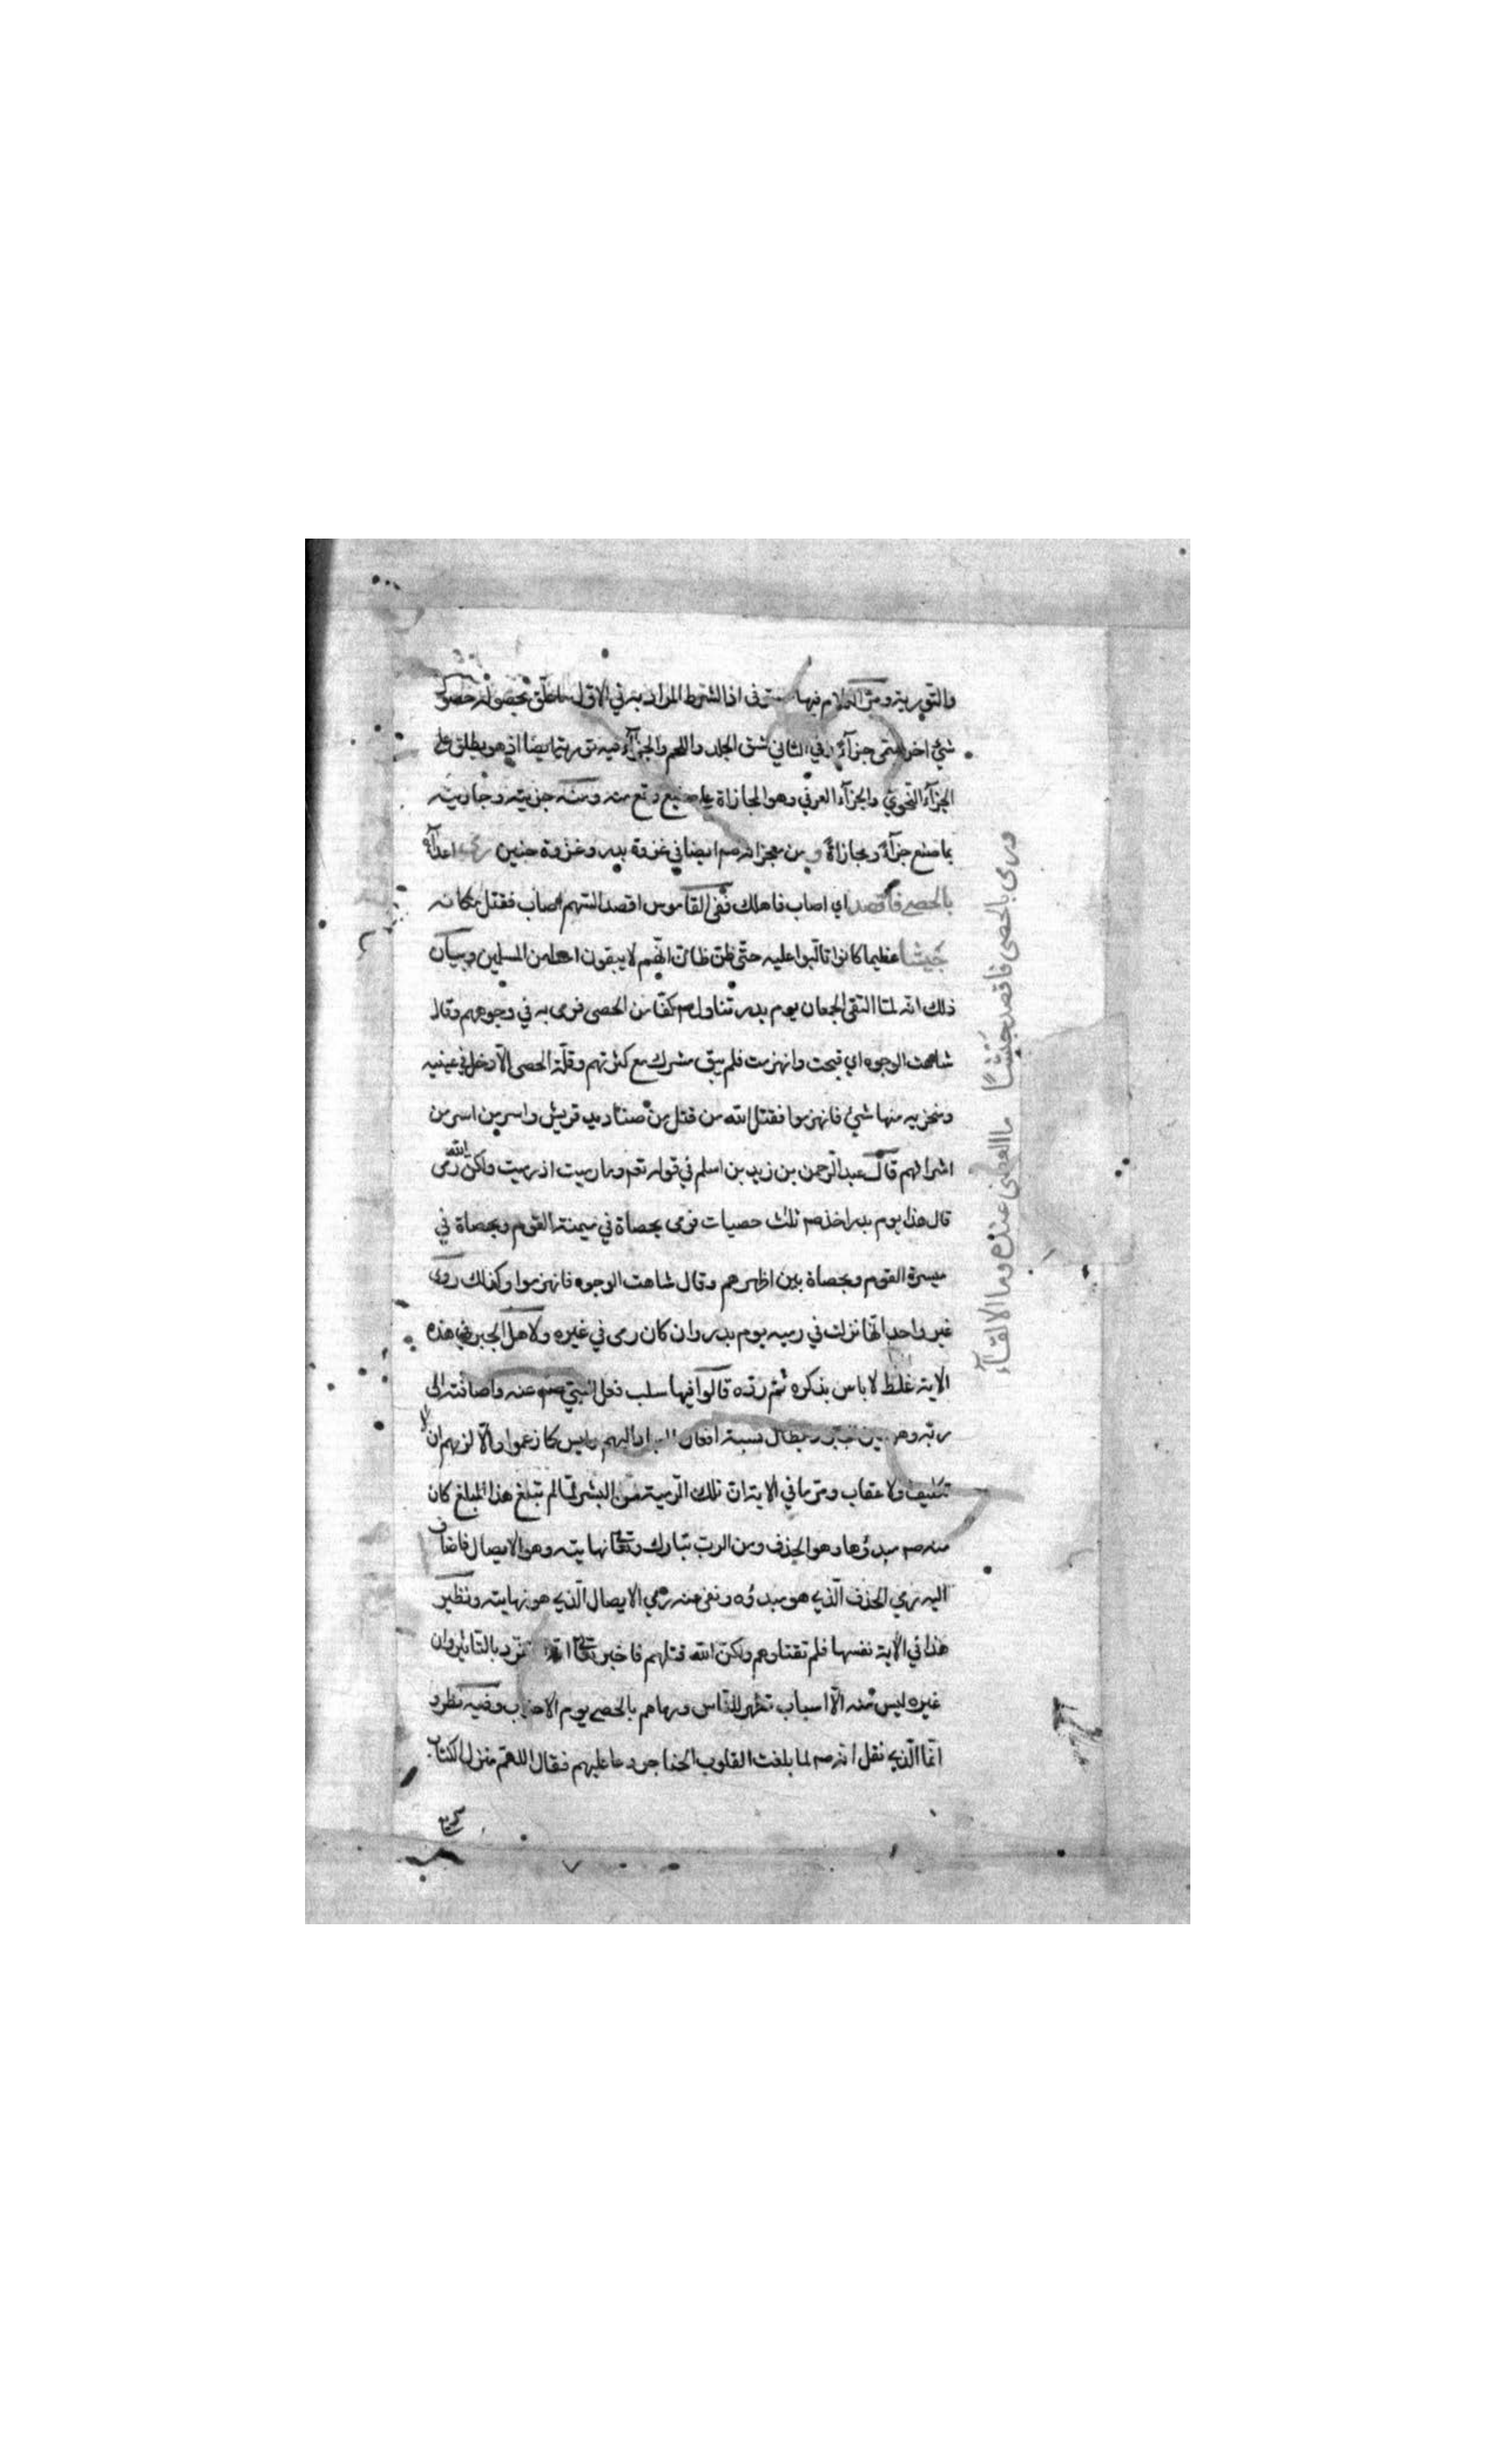 والتورية ومر الكلام فيها مستوفى اذ الشرط المراد به في الاول ما علق بحصوله حصول
شيء اخر يسمى جزآء وفي الثاني شق الجلد واللحم والجزآء فيه تورية ايضا اذ هو يطلق على
الجزآء النحوي والجزآء العرفي وهو المجازاة على صنيع وقع منه ومنه جزيته وجازيته
بما صنع جزآء ومجازاة و من معجزاته صم ايضا في غزوة بدر وغزوة حنين رمى اعداآه
بالحصى فاقصد اي اصاب فاهلك ففي القاموس اقصد السهم اصاب فقتل مكانه
جيشا عظيما كانوا تالبوا عليه حتى ظن ظان انهم لا يبقون احدا من المسلمين وبيان
ذلك انه لما التقى الجمعان يوم بدر تناول صم كفا من الحصى فرمى به في وجوههم وقال
شاهت الوجوه اي قبحت وانهزمت فلم يبق مشرك مع كثرتهم وقلة الحصى الا دخل في عينيه
ومنخريه منها شيء فانهزموا فقتل الله من قتل من صناديد قريش واسر من اسر من
اشرافهم قال عبد الرحمن بن زيد بن اسلم في قوله تعم وما رميت اذ رميت ولكن الله رمى
قال هذا يوم بدر اخذ صم ثلث حصيات فرمى بحصاة في ميمنة القوم وبحصاة في
ميسرة القوم وبحصاة بين اظهرهم وقال شاهت الوجوه فانهزموا وكذلك روى
غير واحد انها نزلت في رميه يوم بدر وان كان رمى في غيره ولاهل الجبر في هذه
الاية غلط لا باس بذكره ثم رده قالوا فيها سلب فعل النبي صم عنه واضافته الى
ربه وهو عين الجبر وابطال نسبة افعال العباد اليهم وليس كما زعموا والا لزمهم ان لا
تكليف ولا عقاب ومر ما في الاية ان تلك الرمية من البشر لما لم تبلغ هذا المبلغ كان
منه صم مبدؤها وهو الحذف ومن الرب تبارك وتعالى نهايته وهو الايصال فاضاف
اليه رمي الحذف الذي هو مبدؤه ونفى عنه رمي الايصال الذي هو نهايته ونظير
هذا في الاية نفسها فلم تقتلوهم ولكن الله قتلهم فاخبر تعالى انه تفرد بالتاثير وان
غيره ليس منه الا اسباب تظهر للناس ورماهم بالحصى يوم الاحزاب وفيه نظر و
انما الذي نقل انه صم لما بلغت القلوب الحناجر دعا عليهم فقال اللهم منزل الكتاب
سريع
ورمى بالحصى فاقصد جيشا ما العصى عنده وما الالقآء